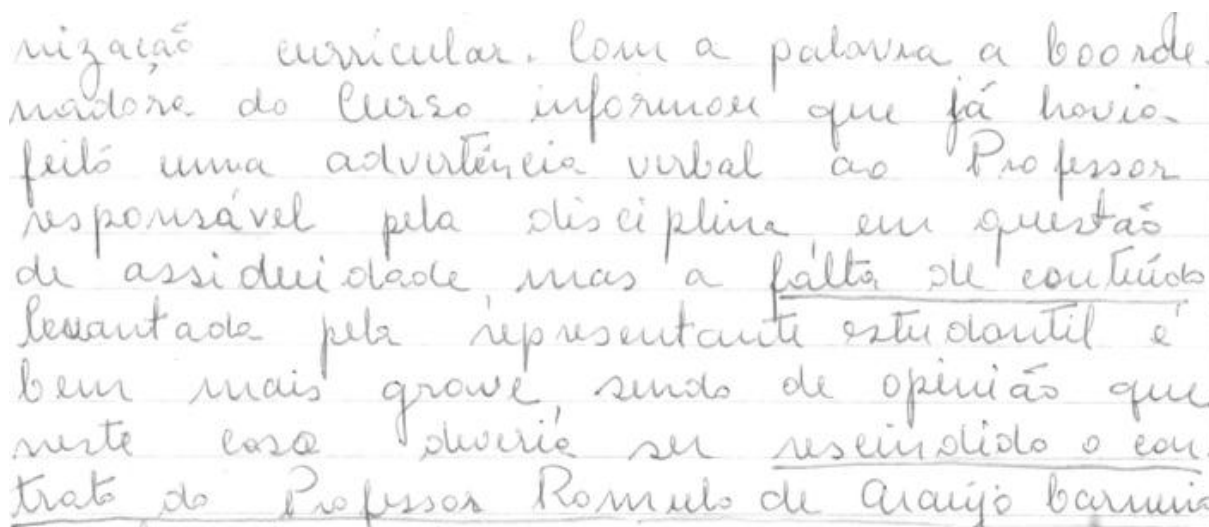 nização curricular. Com a palavra a Coorde-
nadora do Curso informou que já havia
feito uma advertência verbal ao Professor
responsável pela disciplina em questão
de assiduidade mas a falta de conteúdo
levantada pela representante estudantil é
bem mais grave, sendo de opinião que
neste caso deveria ser rescindido o con-
trato do Professor Romulo de Araújo Carneiro